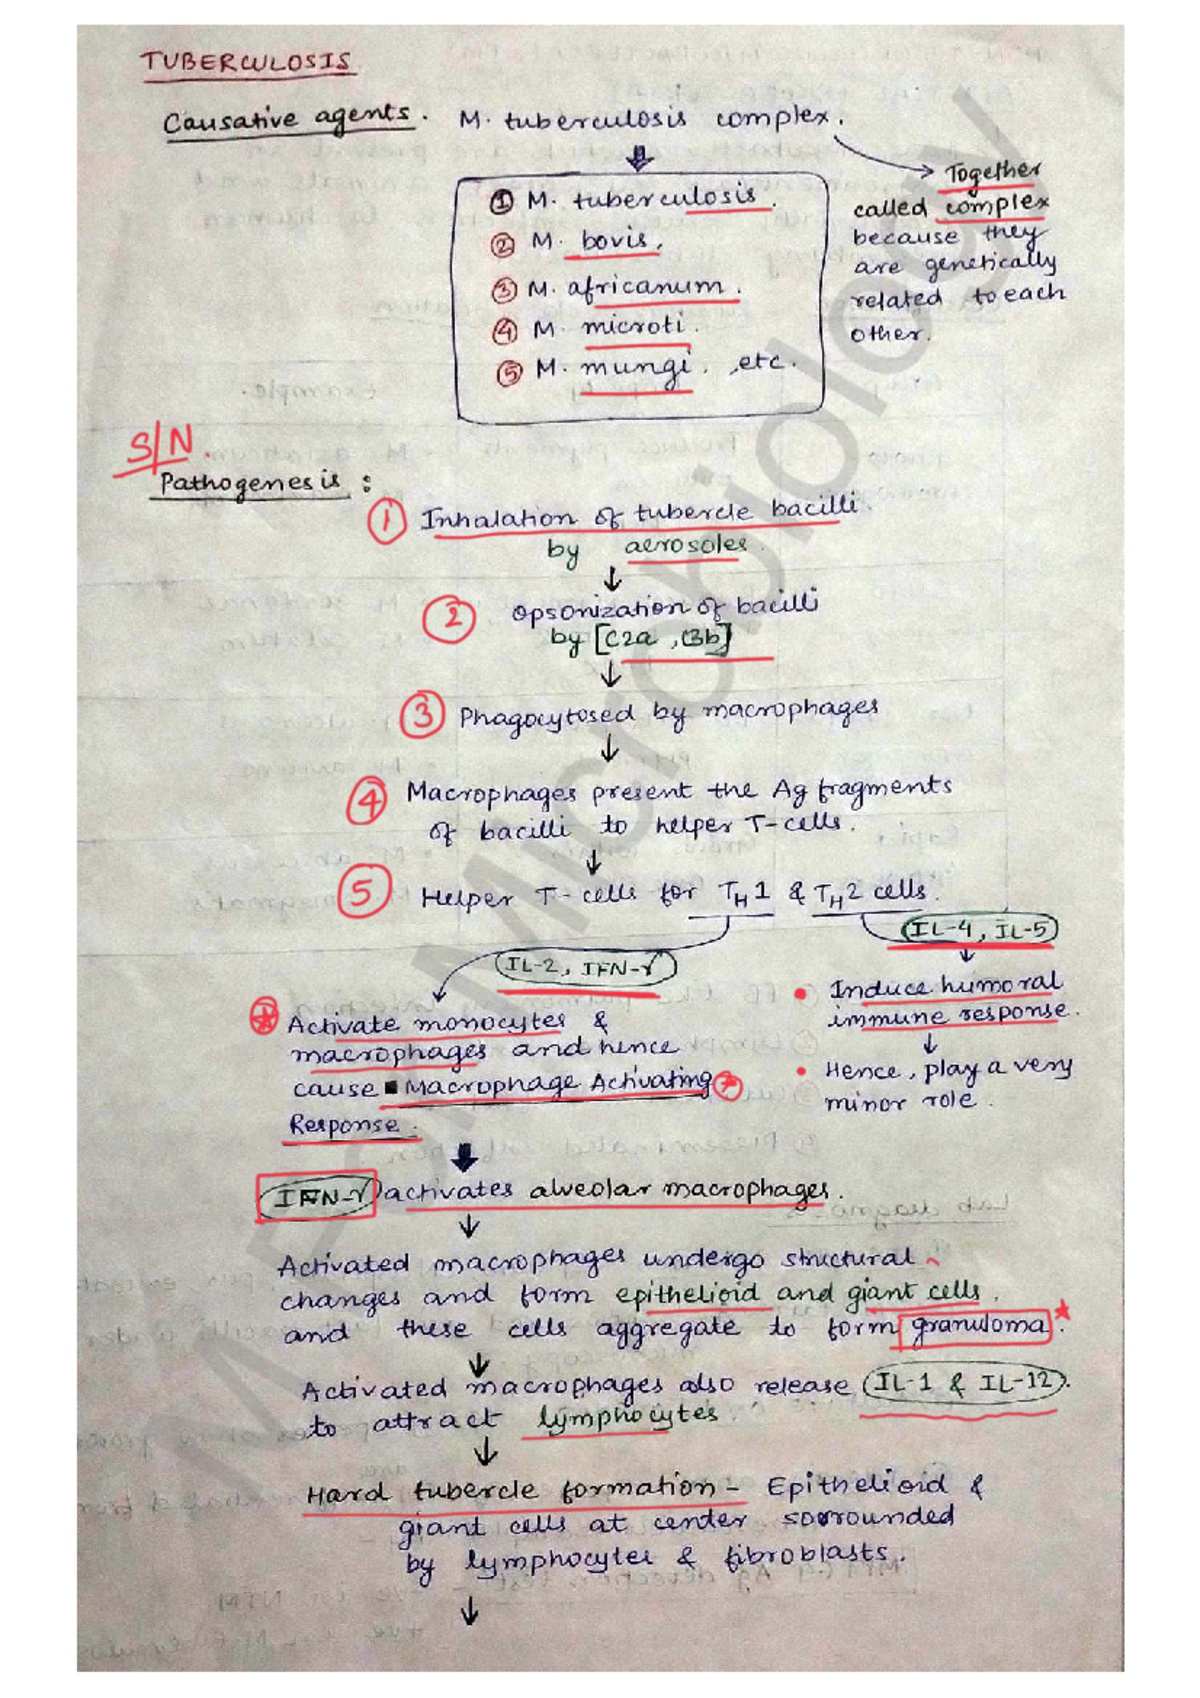 TUBERCULOSIS
Causative agents. M. tuberculosis complex.
① M. tuberculosis.
② M. bovis.
③ M. africanum.
④ M. microti.
⑤ M. mungi. , etc.
Together
called complex
because they
are genetically
related to each
other.
S/N.
Pathogenesis :
① Inhalation of tubercle bacilli.
by aerosoles.
↓
② Opsonization of bacilli
by [C2a , C3b]
↓
③ Phagocytosed by macrophages
↓
④ Macrophages present the Ag fragments
of bacilli to helper T-cells.
↓
⑤ Helper T-cells for TH1 & TH2 cells.
IL-2, IFN-γ
Activate monocytes &
macrophages and hence
cause Macrophage Activating
Response.
IL-4, IL-5
↓
• Induce humoral
immune response.
↓
• Hence, play a very
minor role.
↓
IFN-γ activates alveolar macrophages.
↓
Activated macrophages undergo structural
changes and form epithelioid and giant cells.
and these cells aggregate to form granuloma.
↓
Activated macrophages also release IL-1 & IL-12.
to attract lymphocytes.
↓
Hard tubercle formation - Epithelioid &
giant cells at center sorrounded
by lymphocytes & fibroblasts.
↓